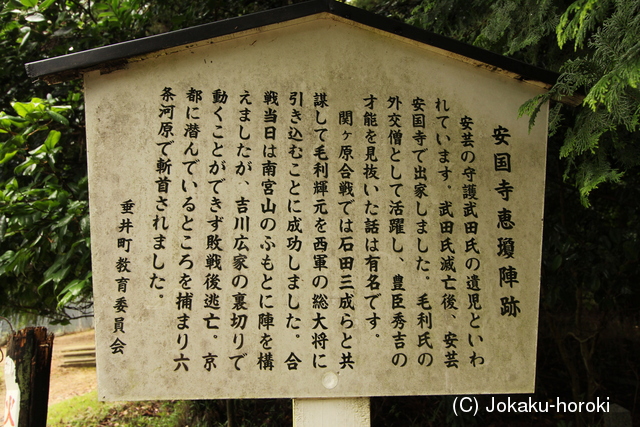 安国寺恵瓊陣跡
安芸の守護武田氏の遺児といわ
れています。武田氏滅亡後、安芸
安国寺で出家しました。毛利氏の
外交僧として活躍し、豊臣秀吉の
才能を見抜いた話は有名です。
関ヶ原合戦では石田三成らと共
謀して毛利輝元を西軍の総大将に
引き込むことに成功しました。合
戦当日は南宮山のふもとに陣を構
えましたが、吉川広家の裏切りで
動くことができず敗戦後逃亡。京
都に潜んでいるところを捕まり六
条河原で斬首されました。
垂井町教育委員会
火
(C) Jokaku-horoki